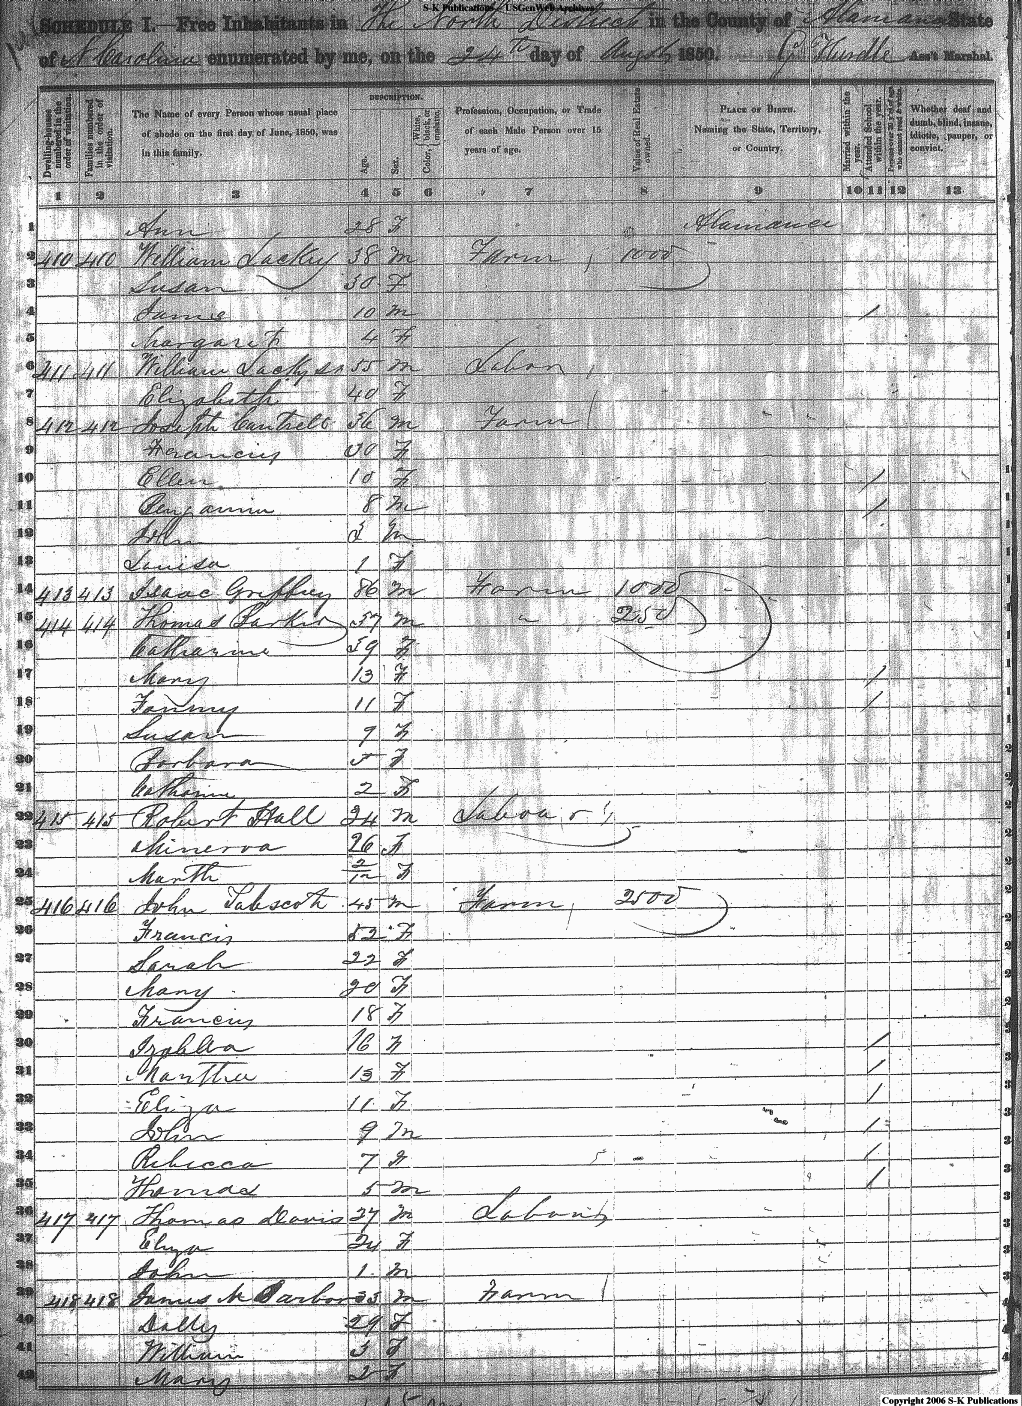 S-K Publications - USGenWeb Archives
SCHEDULE I.—Free Inhabitants in The North District in the County of Alamance State
of N Carolina enumerated by me, on the 24th day of Augst 1850. G Hurdle Ass't Marshal.
Dwelling-houses numbered in the order of visitation.
Families numbered in the order of visitation.
The Name of every Person whose usual place of abode on the first day of June, 1850, was in this family.
DESCRIPTION.
Age.
Sex.
Color, White, black, or mulatto.
Profession, Occupation, or Trade of each Male Person over 15 years of age.
Value of Real Estate owned.
PLACE OF BIRTH.
Naming the State, Territory, or Country.
Married within the year.
Attended School within the year.
Whether deaf and dumb, blind, insane, idiotic, pauper, or convict.
1 2 3 4 5 6 7 8 9 10 11 12 13
1 Ann 28 F Alamance
2 410 410 William Lackey 38 m Farm 1000
3 Susan 30 F
4 10 m /
5 Margarit 4 F
6 411 411 William Lacky sr 55 m Labor
7 Elizabeth 40 F
8 412 412 Joseph Cantrell 36 m Farm
9 Francis 30 F
10 Ellen 10 F /
11 Benjamin 8 m /
12 John 3 m
13 Louisa 1 F
14 413 413 Isaac Griffey 86 m Farm 1000
15 414 414 Thomas Parker 37 m " 250
16 Catharine 39 F
17 Mary 13 F /
18 Fanny 11 F /
19 Susan 9 F
20 Barbara 5 F
21 2 F
22 415 415 Robert Hall 24 m Labour
23 Minerva 26 F
24 Marth 2/12 F
25 416 416 John Tabscoth 45 m Farm 2500
26 Francis 52 F
27 Sarah 22 F
28 Mary 20 F
29 Francis 18 F
30 16 F /
31 Martha 13 F /
32 Eliza 11 F /
33 John 9 m /
34 Rebecca 7 F /
35 Thomas 5 m /
36 417 417 Thomas Davis 27 m Labour
37 Eliza 24 F
38 John 1 m
39 418 418 James M Barbor 33 m Farm
40 Dolly 29 F
41 William 3 F
42 Mary 2 F
Copyright 2006 S-K Publications